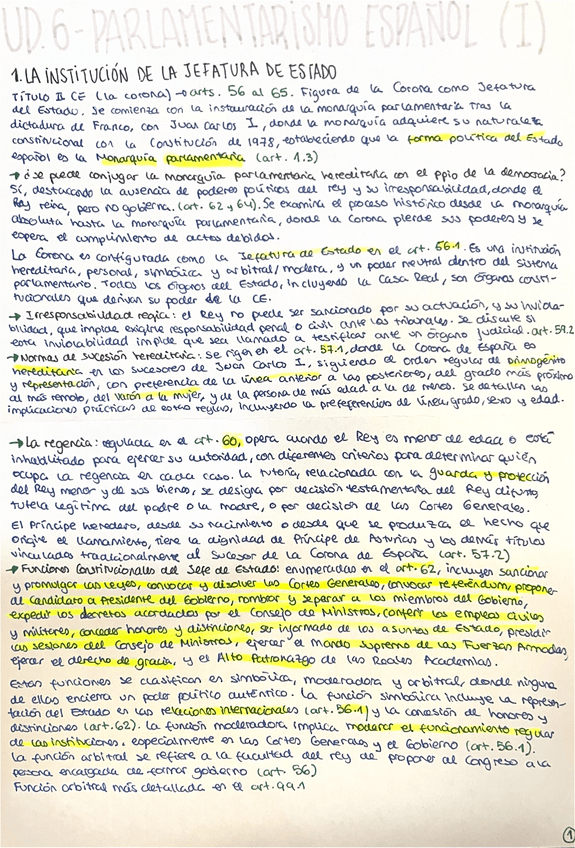 UD.6- PARLAMENTARISMO ESPAÑOL (I)
1. LA INSTITUCIÓN DE LA JEFATURA DE ESTADO
TÍTULO II CE (la corona) → arts. 56 al 65. Figura de la Corona como Jefatura
del Estado. Se comienza con la instauración de la monarquía parlamentaria tras la
dictadura de Franco, con Juan Carlos I, donde la monarquía adquiere su naturaleza
constitucional con la Constitución de 1978, estableciendo que la forma política del Estado
español es la Monarquía parlamentaria (art. 1.3)
→ ¿Se puede conjugar la monarquía parlamentaria hereditaria con el ppio de la democracia?
Sí, destacando la ausencia de poderes políticos del rey y su irresponsabilidad, donde el
Rey reina, pero no gobierna. (art. 62 y 64). Se examina el proceso histórico desde la monarquía
absoluta hasta la monarquía parlamentaria, donde la Corona pierde sus poderes y se
espera el cumplimiento de actos debidos.
La Corona es configurada como la Jefatura de Estado en el art. 56.1. Es una institución
hereditaria, personal, simbólica y arbitral/modera, y un poder neutral dentro del sistema
parlamentario. Todos los órganos del Estado, incluyendo la Casa Real, son órganos consti-
tucionales que derivan su poder de la CE.
→ Irresponsabilidad regia: el Rey no puede ser sancionado por su actuación, y su inviola-
bilidad, que impide exigirle responsabilidad penal o civil ante los tribunales. Se discute si
esta inviolabilidad impide que sea llamado a testificar ante un órgano judicial. art. 59.2
→ Normas de sucesión hereditaria: se rigen en el art. 57.1, donde la Corona de España es
hereditaria en los sucesores de Juan Carlos I, siguiendo el orden regular de primogénito
y representación, con preferencia de la línea anterior a las posteriores, del grado más próximo
al más remoto, del varón a la mujer, y de la persona de más edad a la de menos. Se detallan las
implicaciones prácticas de estas reglas, incluyendo la preferencia de línea, grado, sexo y edad.
→ La regencia: regulada en el art. 60, opera cuando el Rey es menor de edad o está
inhabilitado para ejercer su autoridad, con diferentes criterios para determinar quién
ocupa la regencia en cada caso. La tutoría, relacionada con la guarda y protección
del Rey menor y de sus bienes, se designa por decisión testamentaria del Rey difunto,
tutela legítima del padre o la madre, o por decisión de las Cortes Generales.
El Príncipe heredero, desde su nacimiento o desde que se produzca el hecho que
origine el llamamiento, tiene la dignidad de Príncipe de Asturias y los demás títulos
vinculados tradicionalmente al sucesor de la Corona de España (art. 57.2)
→ Funciones Constitucionales del Jefe de Estado: enumeradas en el art. 62, incluyen sancionar
y promulgar las leyes, convocar y disolver las Cortes Generales, convocar referéndum, proponer
al candidato a Presidente del Gobierno, nombrar y separar a los miembros del Gobierno,
expedir los decretos acordados por el Consejo de Ministros, conferir los empleos civiles
y militares, conceder honores y distinciones, ser informado de los asuntos de Estado, presidir
las sesiones del Consejo de Ministros, ejercer el mando supremo de las Fuerzas Armadas,
ejercer el derecho de gracia, y el Alto Patronazgo de las Reales Academias.
Estas funciones se clasifican en simbólica, moderadora y arbitral, donde ninguna
de ellas encierra un poder político auténtico. La función simbólica incluye la represen-
tación del Estado en las relaciones internacionales (art. 56.1) y la concesión de honores y
distinciones (art. 62). La función moderadora implica moderar el funcionamiento regular
de las instituciones, especialmente en las Cortes Generales y el Gobierno (art. 56.1).
La función arbitral se refiere a la facultad del rey de proponer al Congreso a la
persona encargada de formar gobierno (art 56)
Función arbitral más detallada en el art. 99.1
1